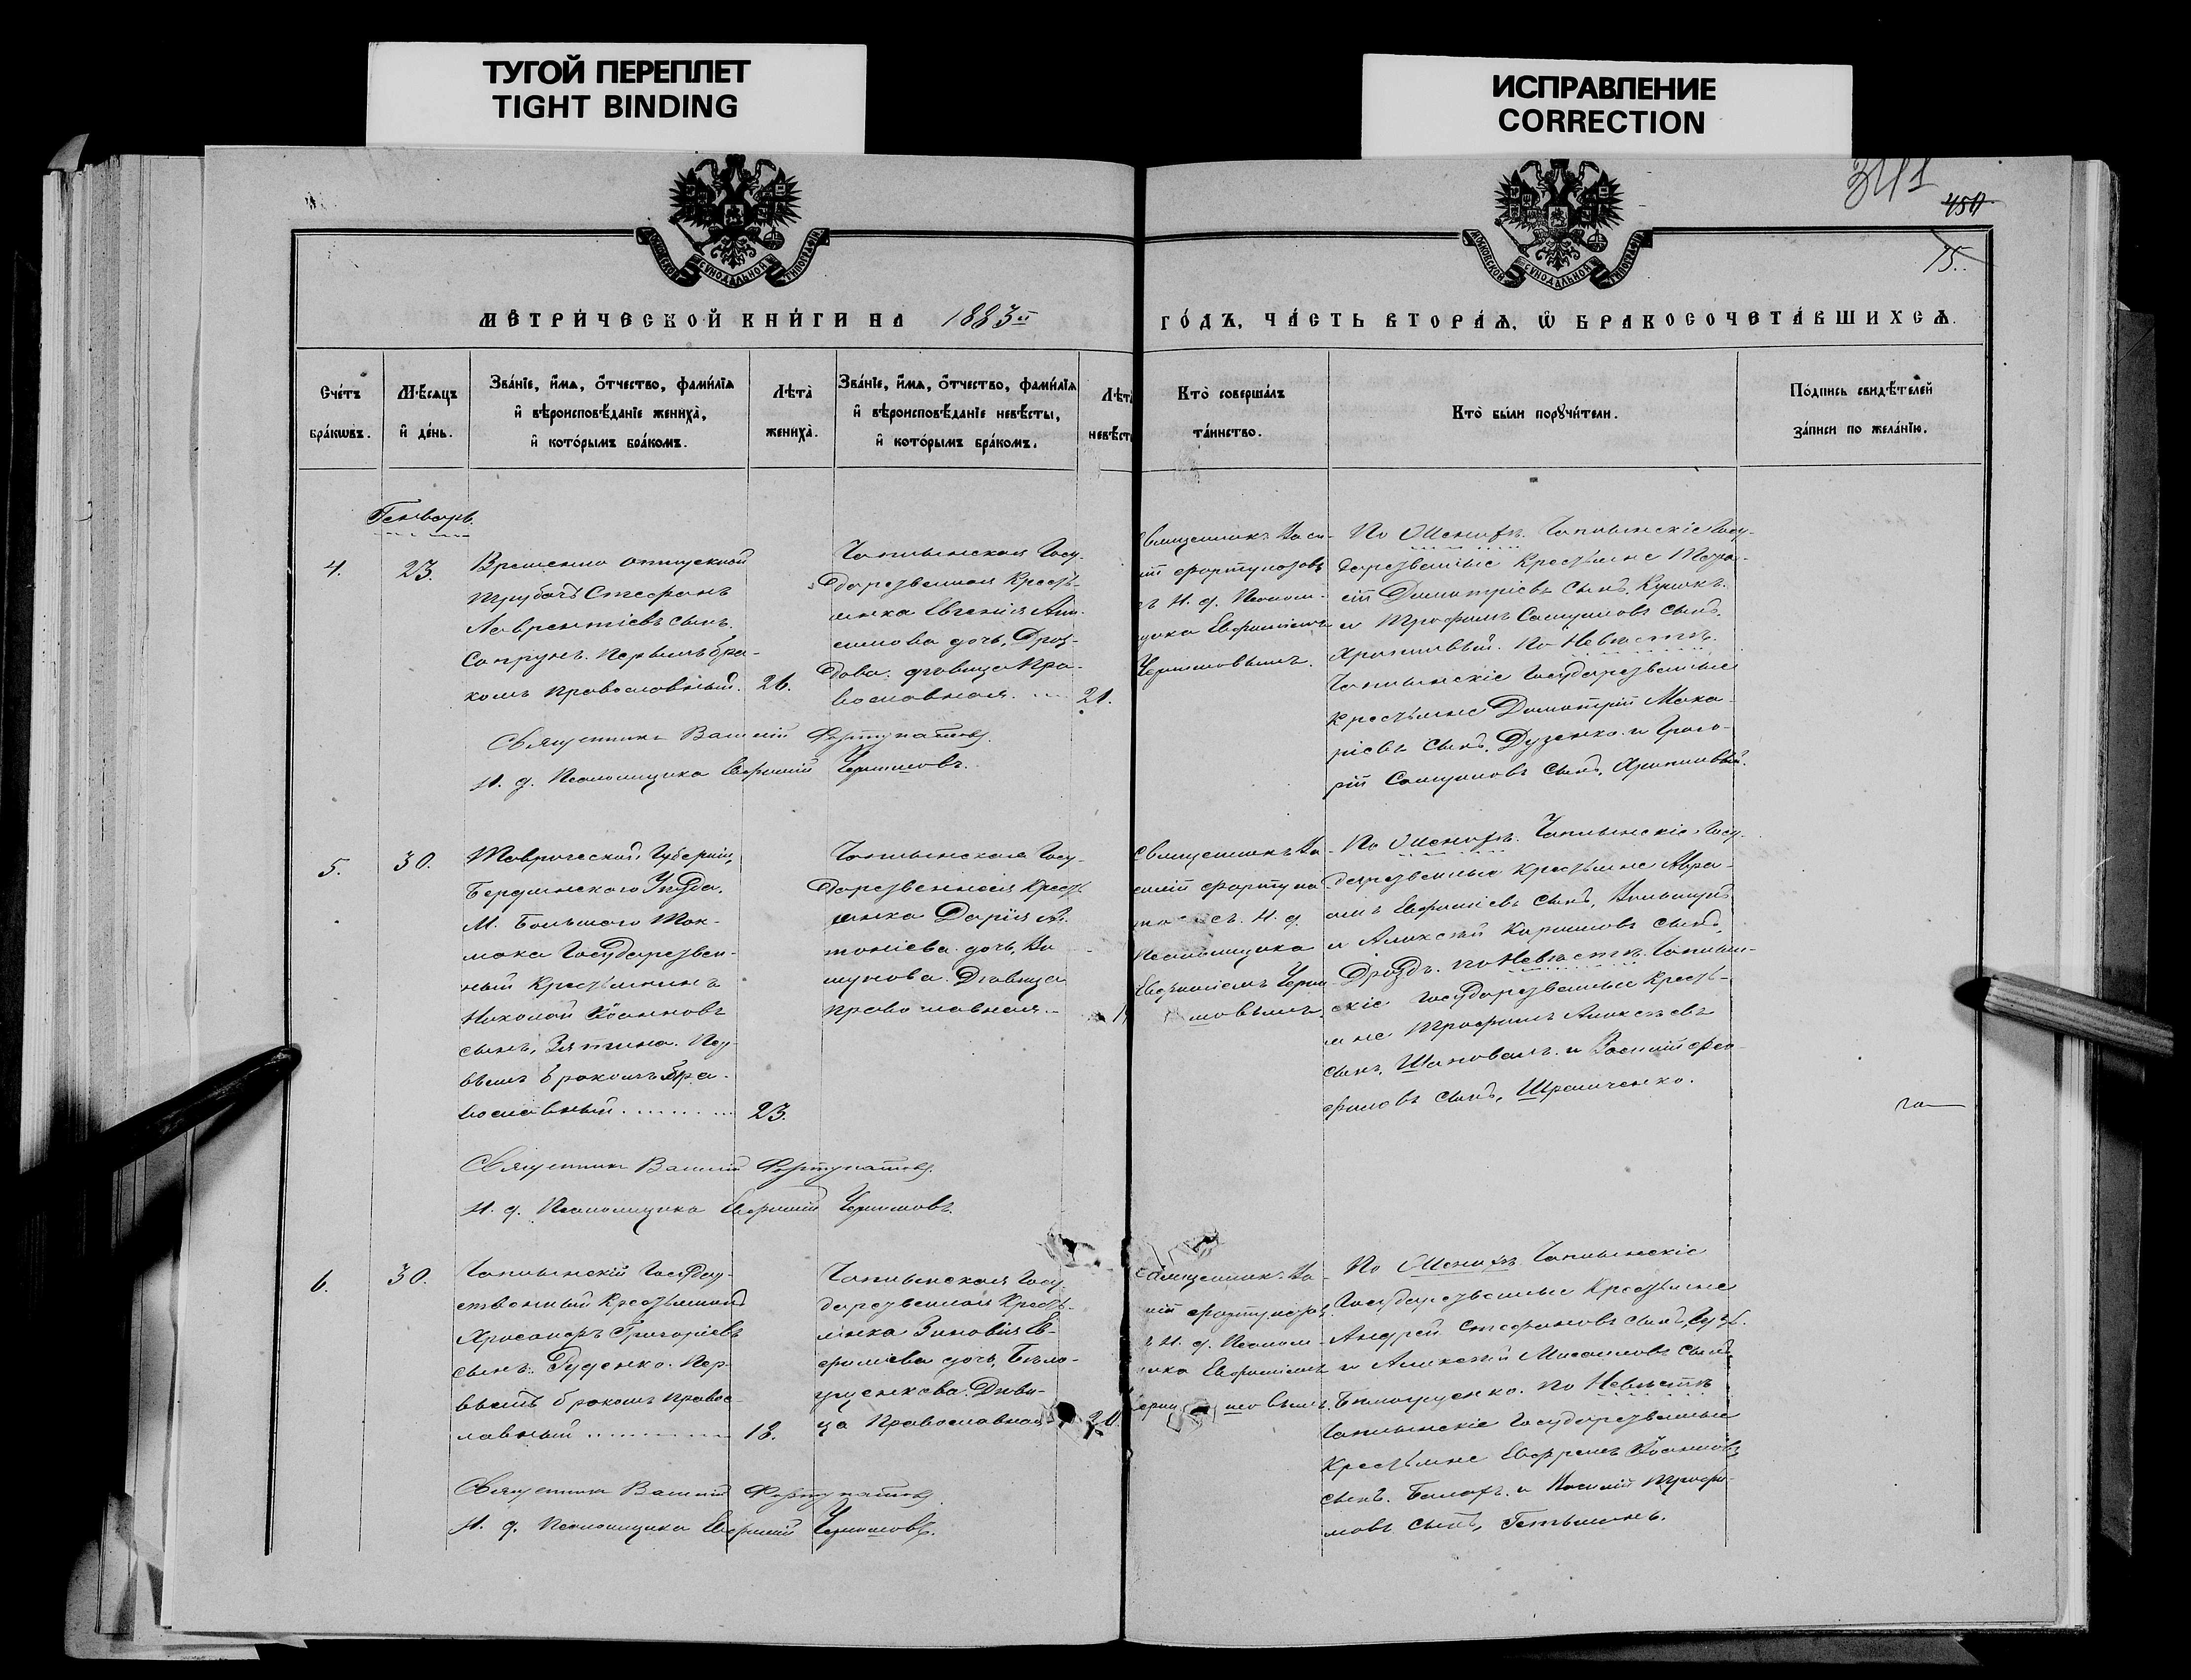 ТУГОЙ ПЕРЕПЛЕТ
TIGHT BINDING
ИСПРАВЛЕНИЕ
CORRECTION
341
450
75.
МОСКОВСКОЙ СУНОДАЛЬНОЙ ТИПОГРАФІИ
МОСКОВСКОЙ СУНОДАЛЬНОЙ ТИПОГРАФІИ
МЕТРИ́ЧЕСКОЙ КНИ́ГИ НА 1883й
ГО́ДЪ, ЧА́СТЬ ВТОРА́Ѧ, Ѡ БРАКОСОЧЕТА́ВШИХСѦ.
Сче́тъ
бра́кѡвъ.
Мѣ́сѧцъ
и҆ де́нь.
Зва́нїе, и҆́мѧ, ѻ҆́тчество, фами́лїѧ
и҆ вѣроисповѣ́данїе жениха̀,
и҆ кото́рымъ бра́комъ.
Лѣта̀
жениха̀.
Зва́нїе, и҆́мѧ, ѻ҆́тчество, фами́лїѧ
и҆ вѣроисповѣ́данїе невѣ́сты,
и҆ кото́рымъ бра́комъ.
Лѣта
невѣст
Кто̀ соверша́лъ
та́инство.
Кто̀ бы́ли порꙋчи́тели.
По́дпись свидѣ́телей
за́писи по жела́нїю.
Генварь.
4.
23.
Временно отпускной
Трубачъ Стефанъ
Лаврентіевъ сынъ.
Сапрунъ. Первымъ бра-
комъ православный.
26.
Чаплынская Госу-
дарственная Кресть-
янка Евгенія Ани-
симова дочь, Дроз-
дова. дѣвица Пра-
вославная.
21.
Священникъ Васи-
ій Фортунатовъ
ъ И. д. Псалом-
щика Евфиміемъ
Чернышовымъ.
По Женихѣ. Чаплынскіе Госу-
дарственные Крестьяне
Димитріевъ сынъ, Кулыкъ.
и Трофимъ Самуиловъ сынъ,
По Невѣстѣ.
Чаплынскіе Государственные
Крестьяне Димитрій Мака-
ріевъ сынъ, Дузенко. и Григо-
рій Самуиловъ сынъ,
Священникъ Василій Фортунатовъ.
И. д. Псаломщика Евфимій Чернышовъ.
5.
30.
Таврической Губерніи,
Бердянского Уѣзда,
М. Большого Ток-
мака Государствен-
ный Крестьянинъ
Николай Іоанновъ
сынъ, Зятина. Пер-
вымъ бракомъ Пра-
вославный
23.
Чаплынская Госу-
дарственная Кресть
янка Дарія Ан-
тоніева дочь,
Дѣвица
православная.
Священникъ Ва-
силій Фортуна
съ И. д.
Псаломщика
Евфиміемъ Черны-
шовымъ.
По Женихѣ. Чаплынскіе Госу-
дарственные Крестьяне Авра-
амъ Евфиміевъ сынъ,
и Алексѣй Кариповъ сынъ,
Дроздъ. По Невѣстѣ. Чаплын-
скіе Государственные Кресть-
яне Трофимъ Алексѣевъ
сынъ, Шаповалъ. и Василій Трo-
фимовъ сынъ, Шрамченко.
Священникъ Василій Фортунатовъ.
И. д. Псаломщика Евфимій Чернышовъ.
6.
30.
Чаплынскій Государ-
ственный Крестьянинъ
Хрисанфъ Григоріевъ
сынъ, Гуденко. Пер-
вымъ бракомъ Правос-
лавный
18.
Чаплынская Госу-
дарственная Кресть-
янка Зиновія Ев-
фиміева дочь, Бѣло-
Дѣви-
ца Православная
20.
Священникъ Ва-
лій Фортунатовъ
ъ И. д. Псалом-
щика Евфиміемъ
шовымъ.
По Женихѣ Чаплынскіе
Государственные Крестьяне
Андрей Стефановъ сынъ,
и Алексѣй сынъ,
По Невѣстѣ
Чаплынскіе Государственные
Крестьяне Ефремъ Іоанновъ
сынъ, и Василій Трофи-
мовъ сынъ, Гетьманъ.
Священникъ Василій Фортунатовъ.
И. д. Псаломщика Евфимій Чернышовъ.